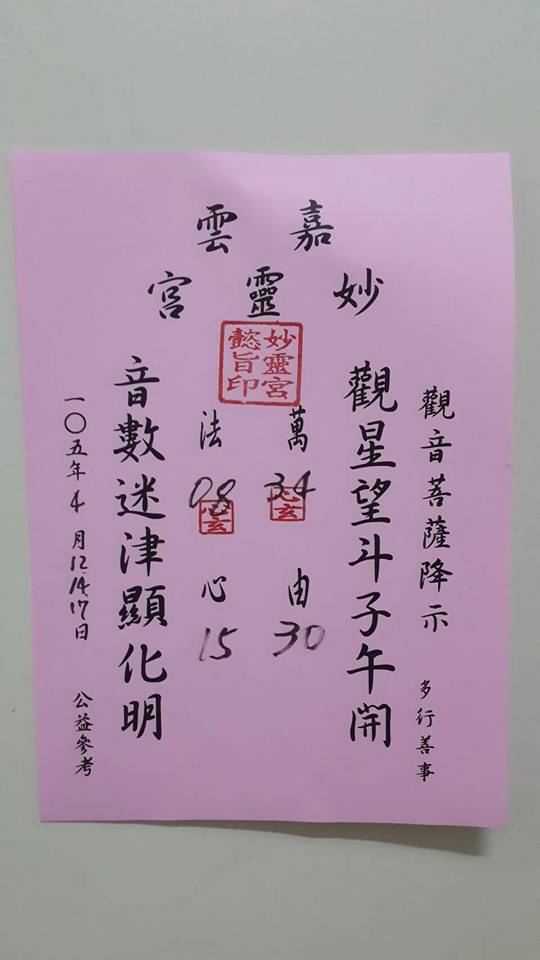 嘉雲
妙靈宮
妙靈宮
懿旨印
觀音菩薩降示 多行善事
觀星望斗子午開
萬 34 由 30
法 08 心 15
心玄
心玄
音數迷津顯化明
一〇五年4月12.14.17日 公益參考